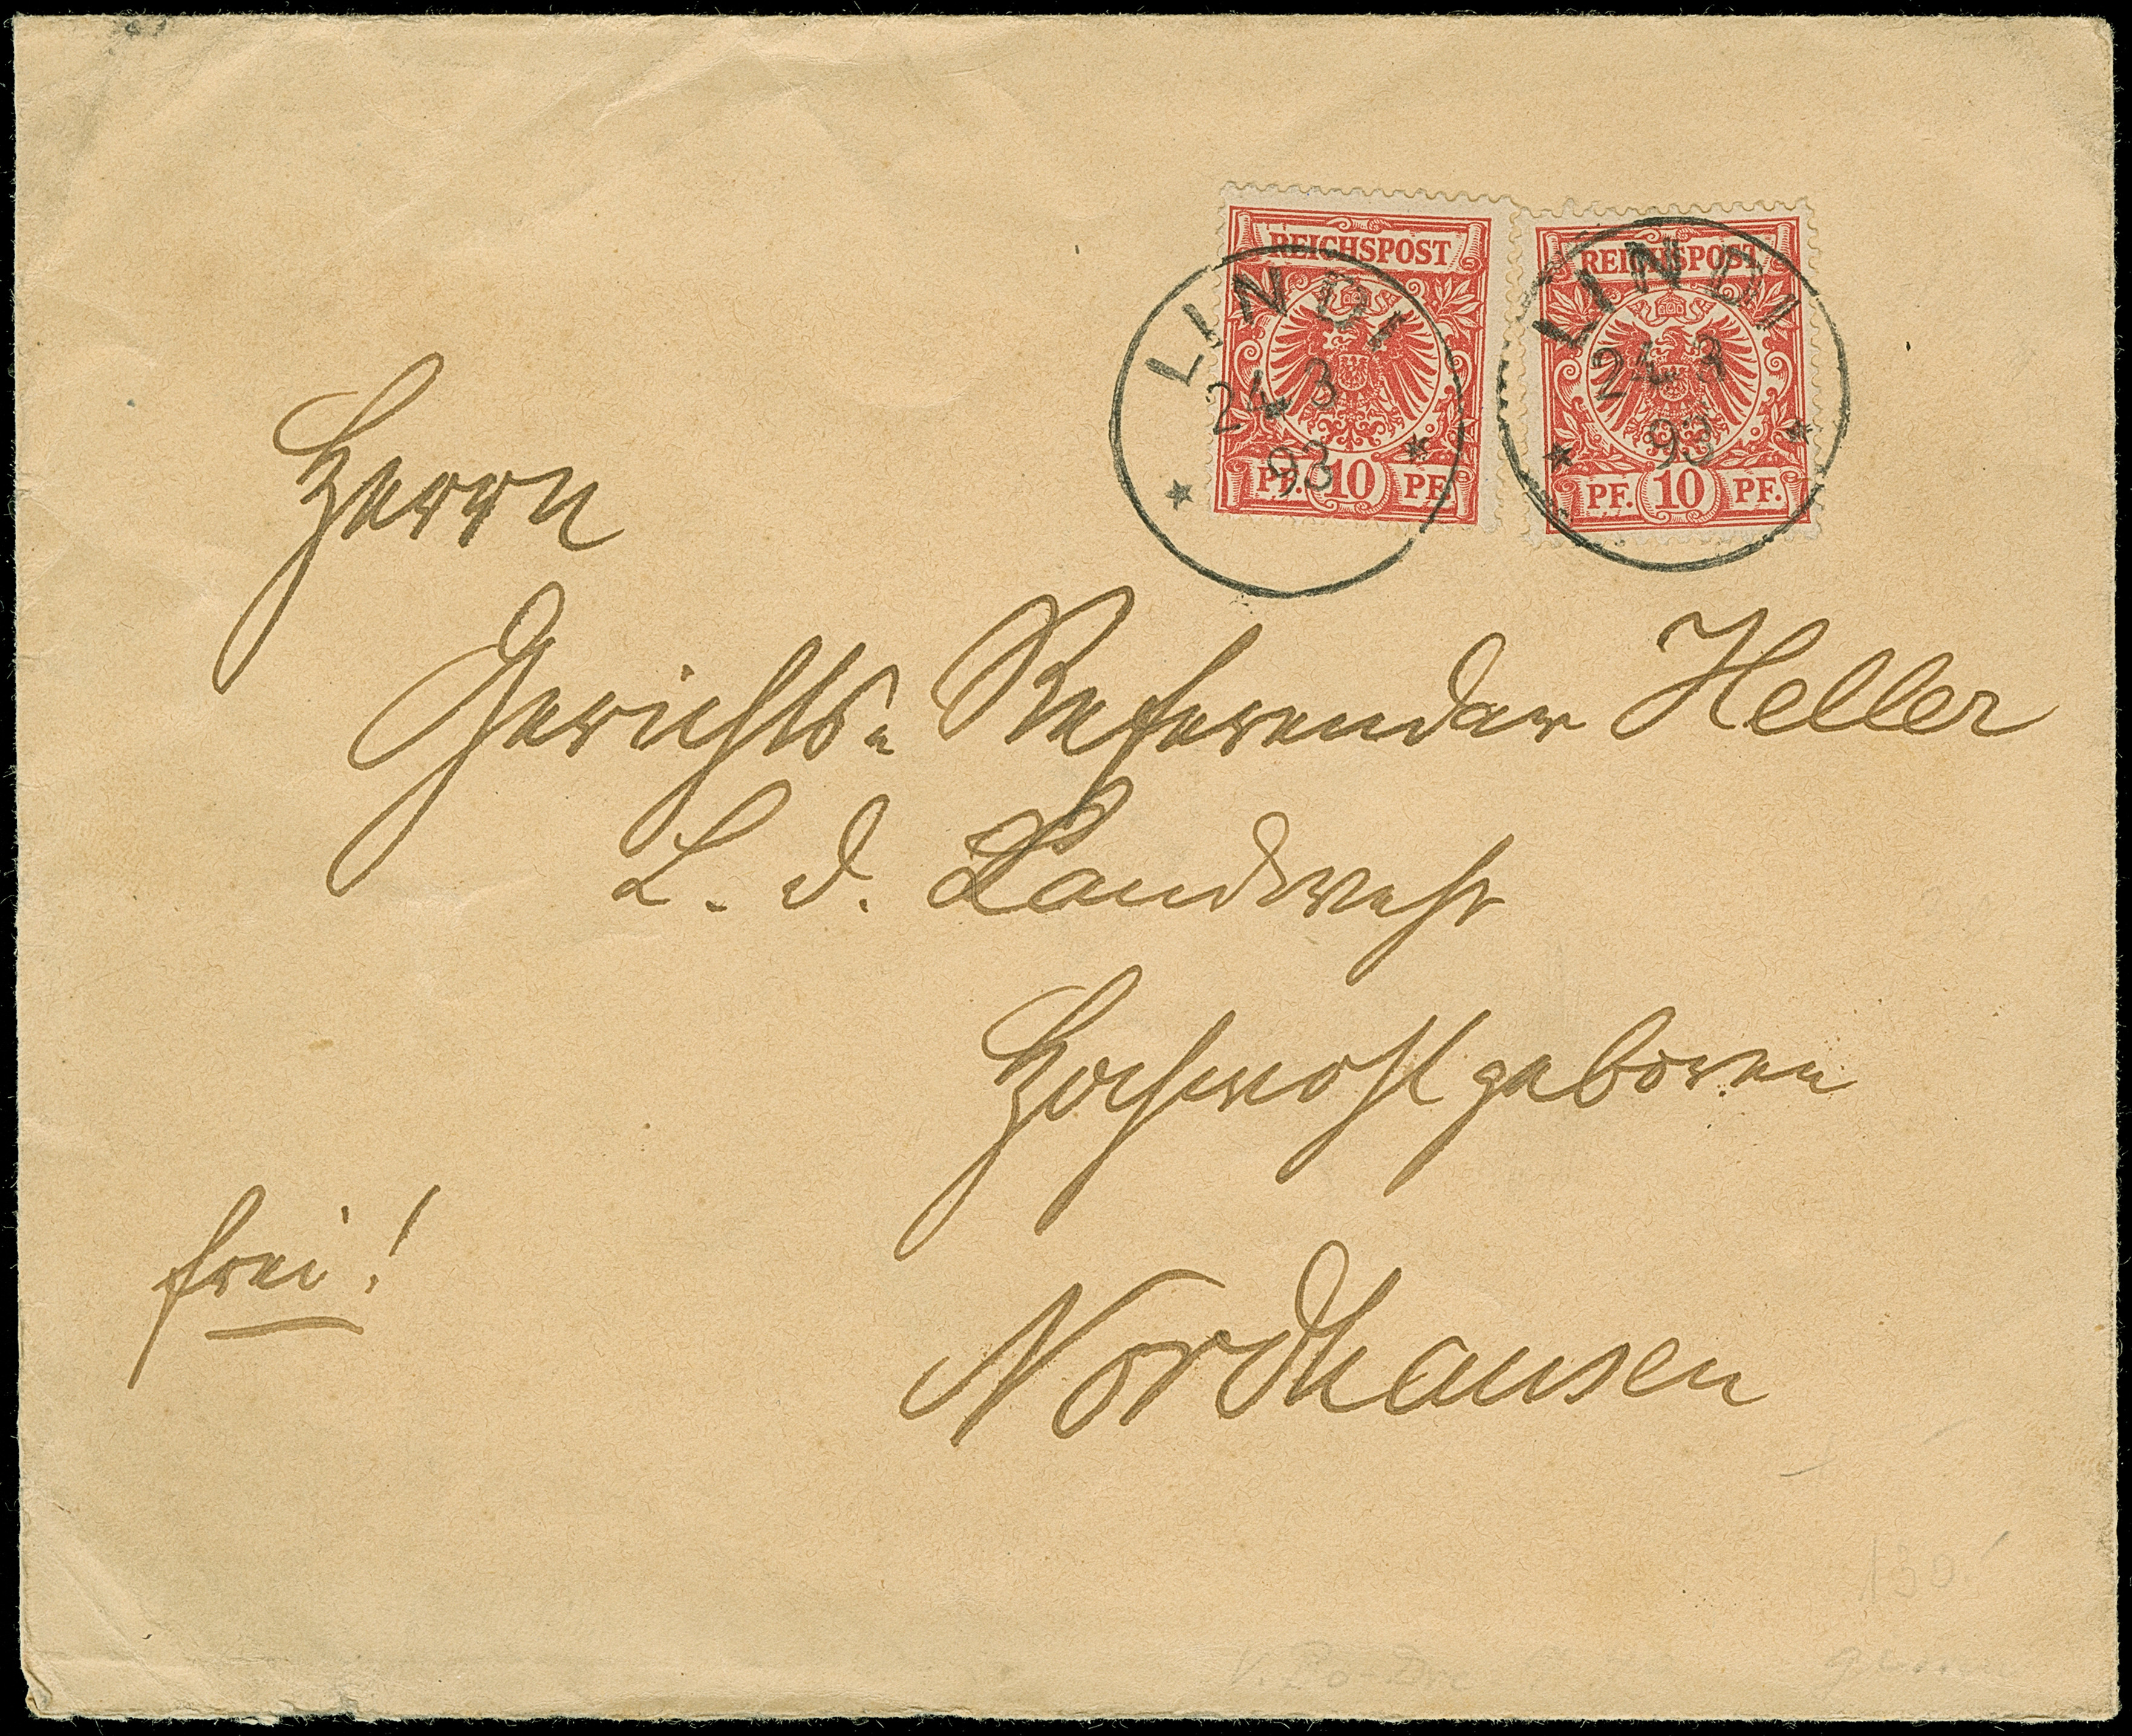 REICHSPOST
PF. 10 PF.
LINDI
24 3
93
REICHSPOST
PF. 10 PF.
LINDI
24 3
93
Herrn
Gerichts= Referendar Heller
L. d. Landwehr
Hochwohlgeboren
frei!
Nordhausen
130